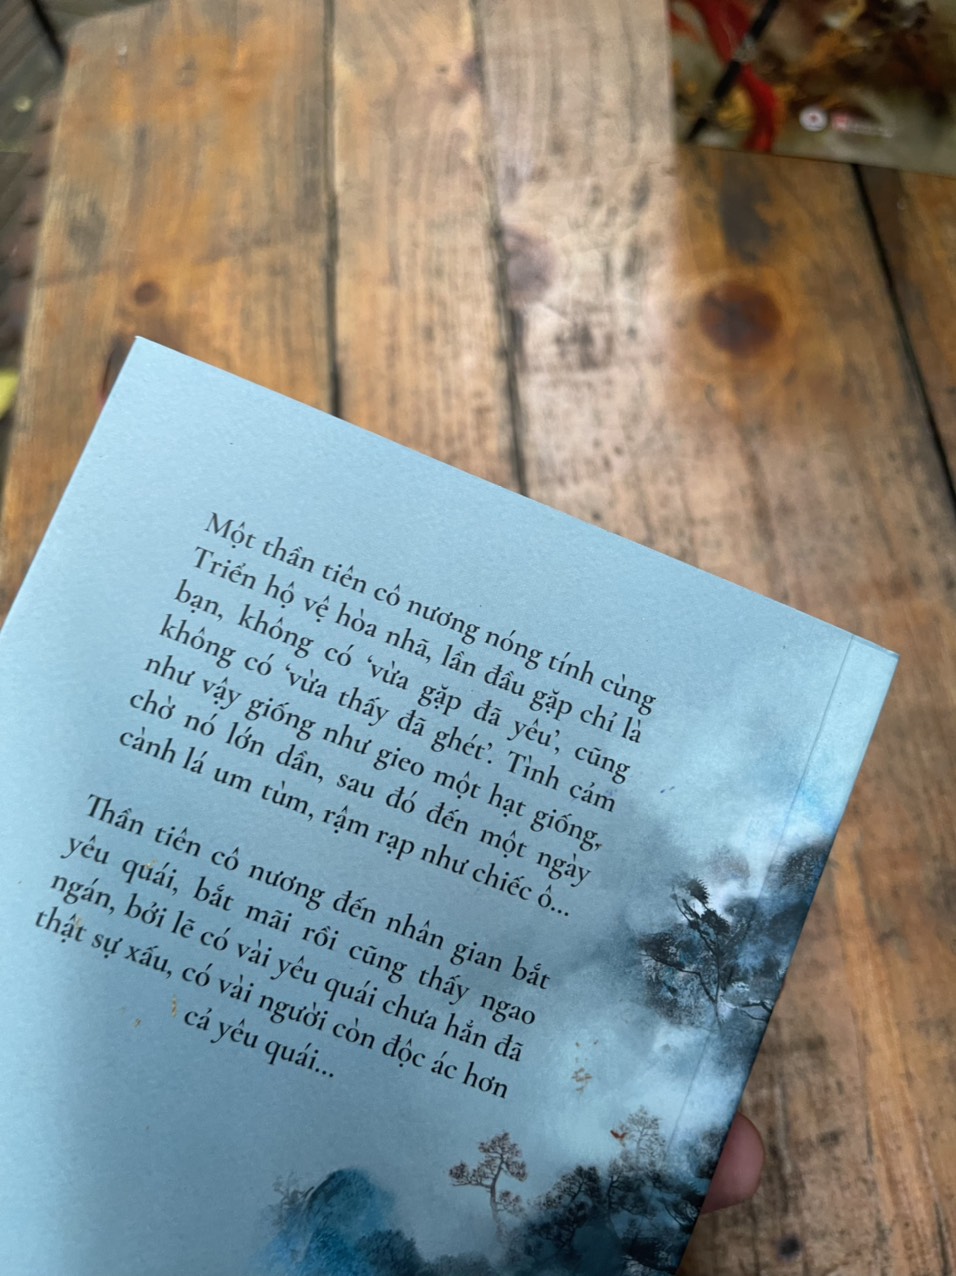 Một thần tiên cô nương nóng tính cùng
Triển hộ vệ hòa nhã, lần đầu gặp chỉ là
bạn, không có ‘vừa gặp đã yêu’, cũng
không có ‘vừa thấy đã ghét’. Tình cảm
như vậy giống như gieo một hạt giống,
chờ nó lớn dần, sau đó đến một ngày
cành lá um tùm, rậm rạp như chiếc ô...
Thần tiên cô nương đến nhân gian bắt
yêu quái, bắt mãi rồi cũng thấy ngao
ngán, bởi lẽ có vài yêu quái chưa hẳn đã
thật sự xấu, có vài người còn độc ác hơn
cả yêu quái...